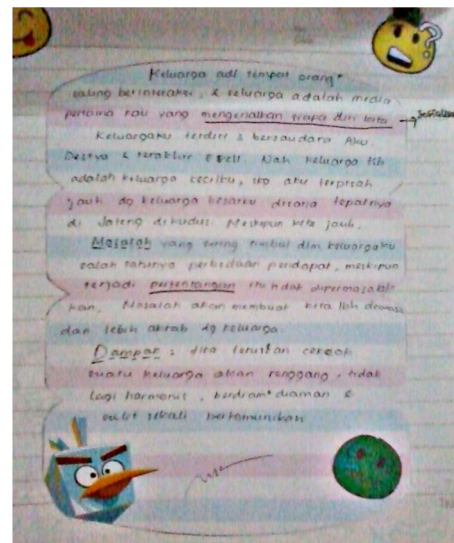 Keluarga adl tempat orang"
saling berinteraksi, & keluarga adalah media
pertama kali yang mengenalkan siapa diri kita
Keluargaku terdiri 3 bersaudara Aku.
Destya & terakhir Nah keluarga
adalah keluarga kecilku, aku terpisah
jauh dg keluarga besarku disana tepatnya
di Jateng dikudus. Meskipun kita jauh.
Masalah yang sering timbul dlm keluargaku
salah satunya perbedaan pendapat, meskipun
terjadi pertentangan itu tidak dipermasalah
kan, Masalah akan membuat kita lbh dewasa
dan lebih akrab dg keluarga.
Dampak : cekcok
suatu keluarga akan renggang, tidak
lagi harmonis, &
sulit sekali berkomunikasi